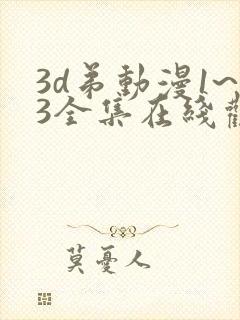 3d弟動漫1~
3全集在綫觀
莫憂人